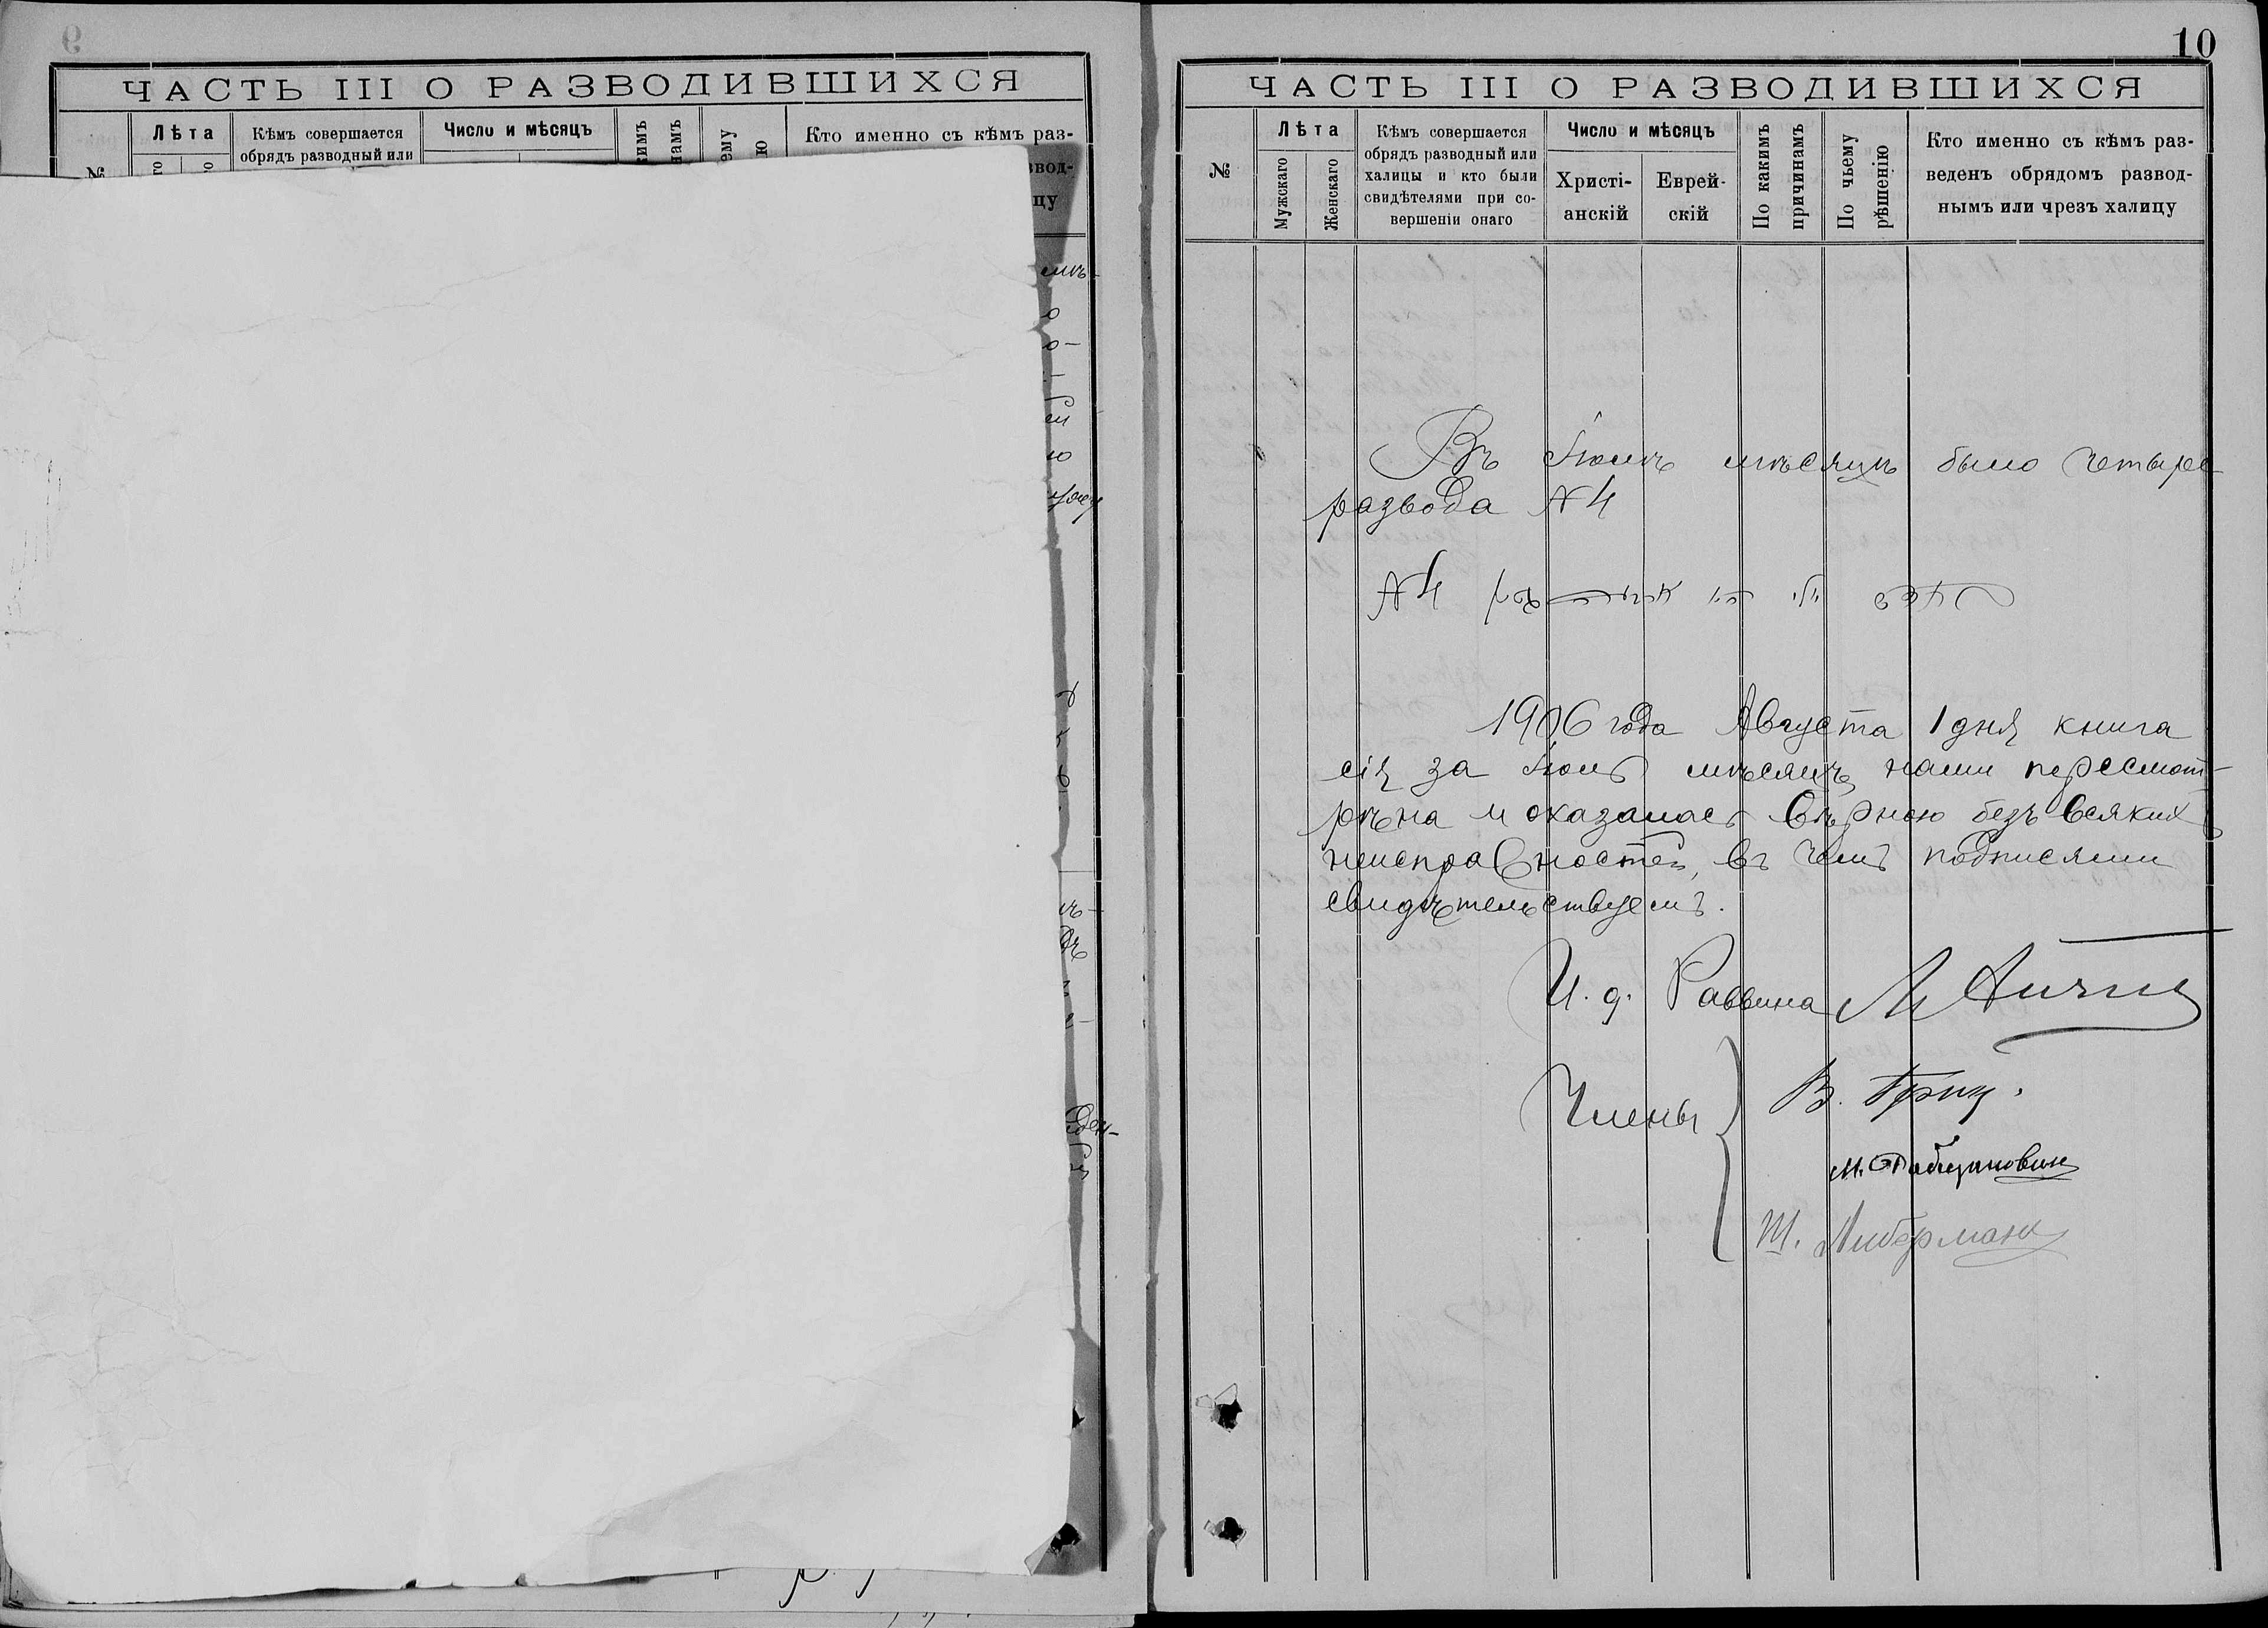 9
ЧАСТЬ III О РАЗВОДИВШИХСЯ
№
Лѣта
Кѣмъ совершается
обрядъ разводный или
Число и мѣсяцъ
Кто именно съ кѣмъ раз-
10
ЧАСТЬ III О РАЗВОДИВШИХСЯ
№
Лѣта
Мужскаго
Женскаго
Кѣмъ совершается
обрядъ разводный или
халицы и кто были
свидѣтелями при со-
вершеніи онаго
Число и мѣсяцъ
Христі-
анскій
Еврей-
скій
По какимъ
причинамъ
По чьему
рѣшенію
Кто именно съ кѣмъ раз-
веденъ обрядомъ развод-
нымъ или чрезъ халицу
Въ мѣсяцѣ было четыре
развода № 4
№ 4
1906 года Августа 1 дня книга
сія за мѣсяцъ нами пересмот-
рѣна и оказалась вѣрною безъ всякихъ
неисправностей, въ чемъ подписями
свидѣтельствуемъ.
И. д. Раввина
Члены
В.
М. Рабиновичъ
Ш. Либерманъ